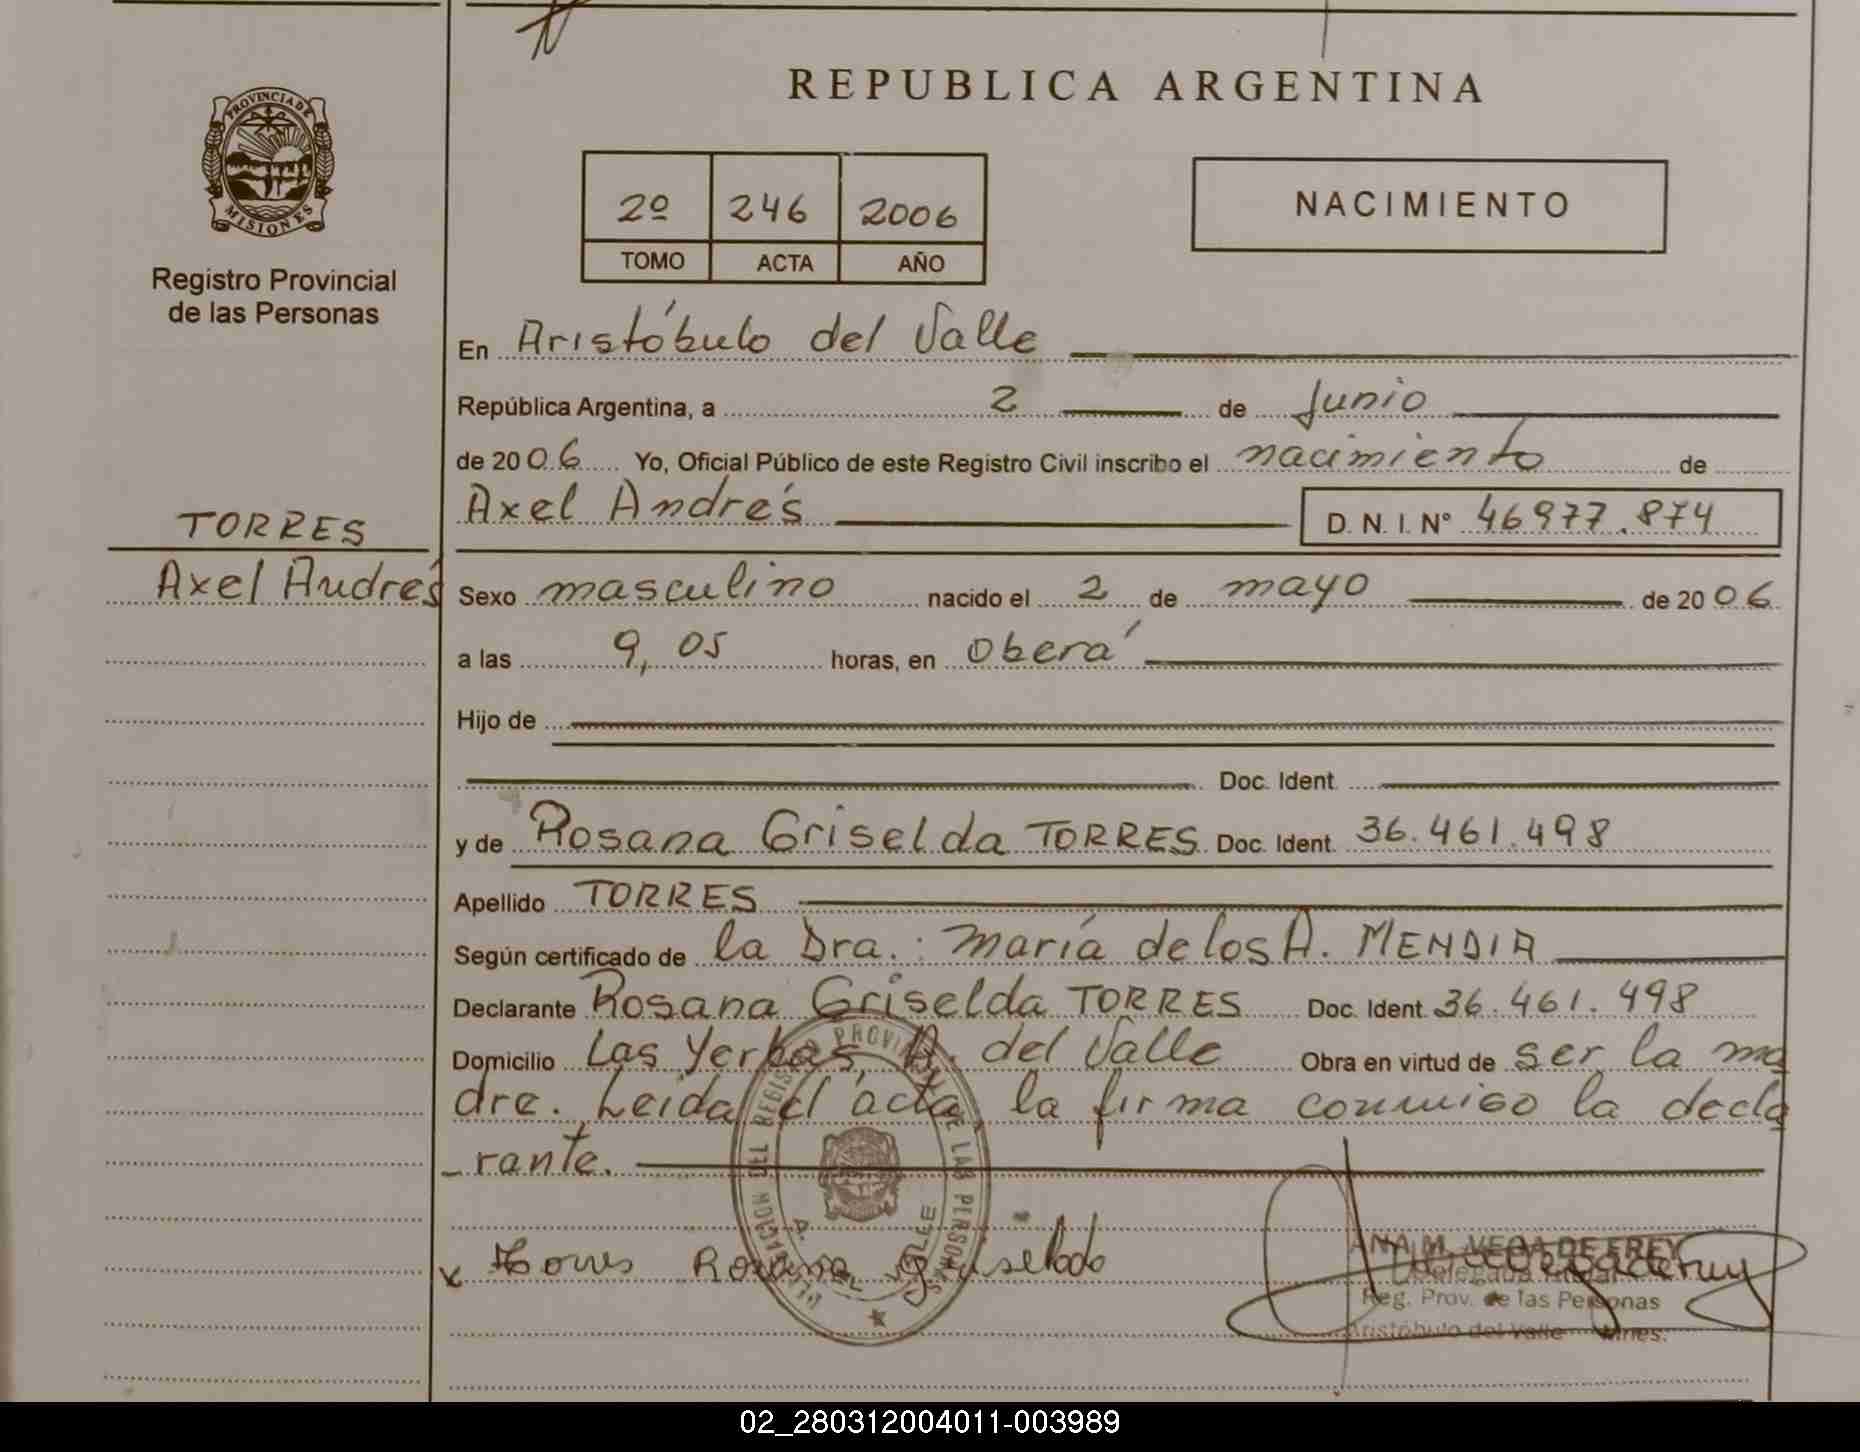 REPUBLICA ARGENTINA
PROVINCIA DE
MISIONES
Registro Provincial
de las Personas
2º 246 2006
TOMO ACTA AÑO
NACIMIENTO
En Aristóbulo del Valle
República Argentina, a 2 de Junio
de 2006 Yo, Oficial Público de este Registro Civil inscribo el nacimiento de
Axel Andrés D. N. I. Nº 46977.874
TORRES
Axel Andrés
Sexo masculino nacido el 2 de mayo de 2006
a las 9,05 horas, en Oberá
Hijo de
Doc. Ident.
y de Rosana Griselda TORRES Doc. Ident. 36.461.498
Apellido TORRES
Según certificado de la Dra.: María de los A. MENDIA
Declarante Rosana Griselda TORRES Doc. Ident. 36.461.498
Domicilio Las Yerbas, A. del Valle Obra en virtud de ser la ma
dre. Leida el acta, la firma conmigo la decla
-rante.
DELEGACION DEL REGISTRO PROVINCIAL DE LAS PERSONAS
A. DEL VALLE
x Torres Rosana Griselda
ANA M. VEGA DE FREY
Delegada
Reg. Prov. de las Personas
Aristóbulo del Valle Mnes.
02_280312004011-003989